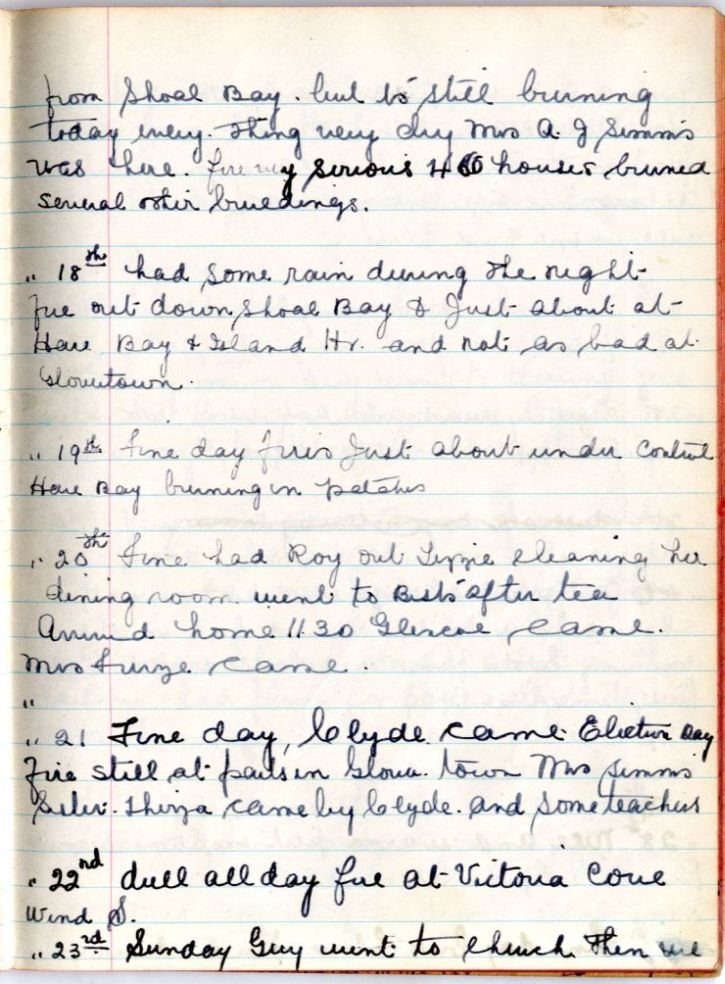 from Shoal Bay. but is still burning
today every. thing very dry Mrs A. J Simms
was here. fire very serious 4 houses burned
several other buildings.
" 18th had some rain during the night
fire out down Shoal Bay & Just about at
Hare Bay & Island Hr. and not as bad at
Glovertown.
" 19th Fine day fires Just about under control
Hare Bay burning in patches
" 20th Fine had Roy out Lizzie cleaning her
dining room went to Bests after tea
Arrived home 11 30 Glencoe came.
Mrs Furze came.
"
" 21 Fine day, Clyde came Election Day
fire still at parts in Glover town Mrs Simms
Sister. Thirza came by Clyde. and some teachers
" 22nd dull all day fire at Victoria Cove
Wind S.
" 23rd Sunday Guy went to Church then we